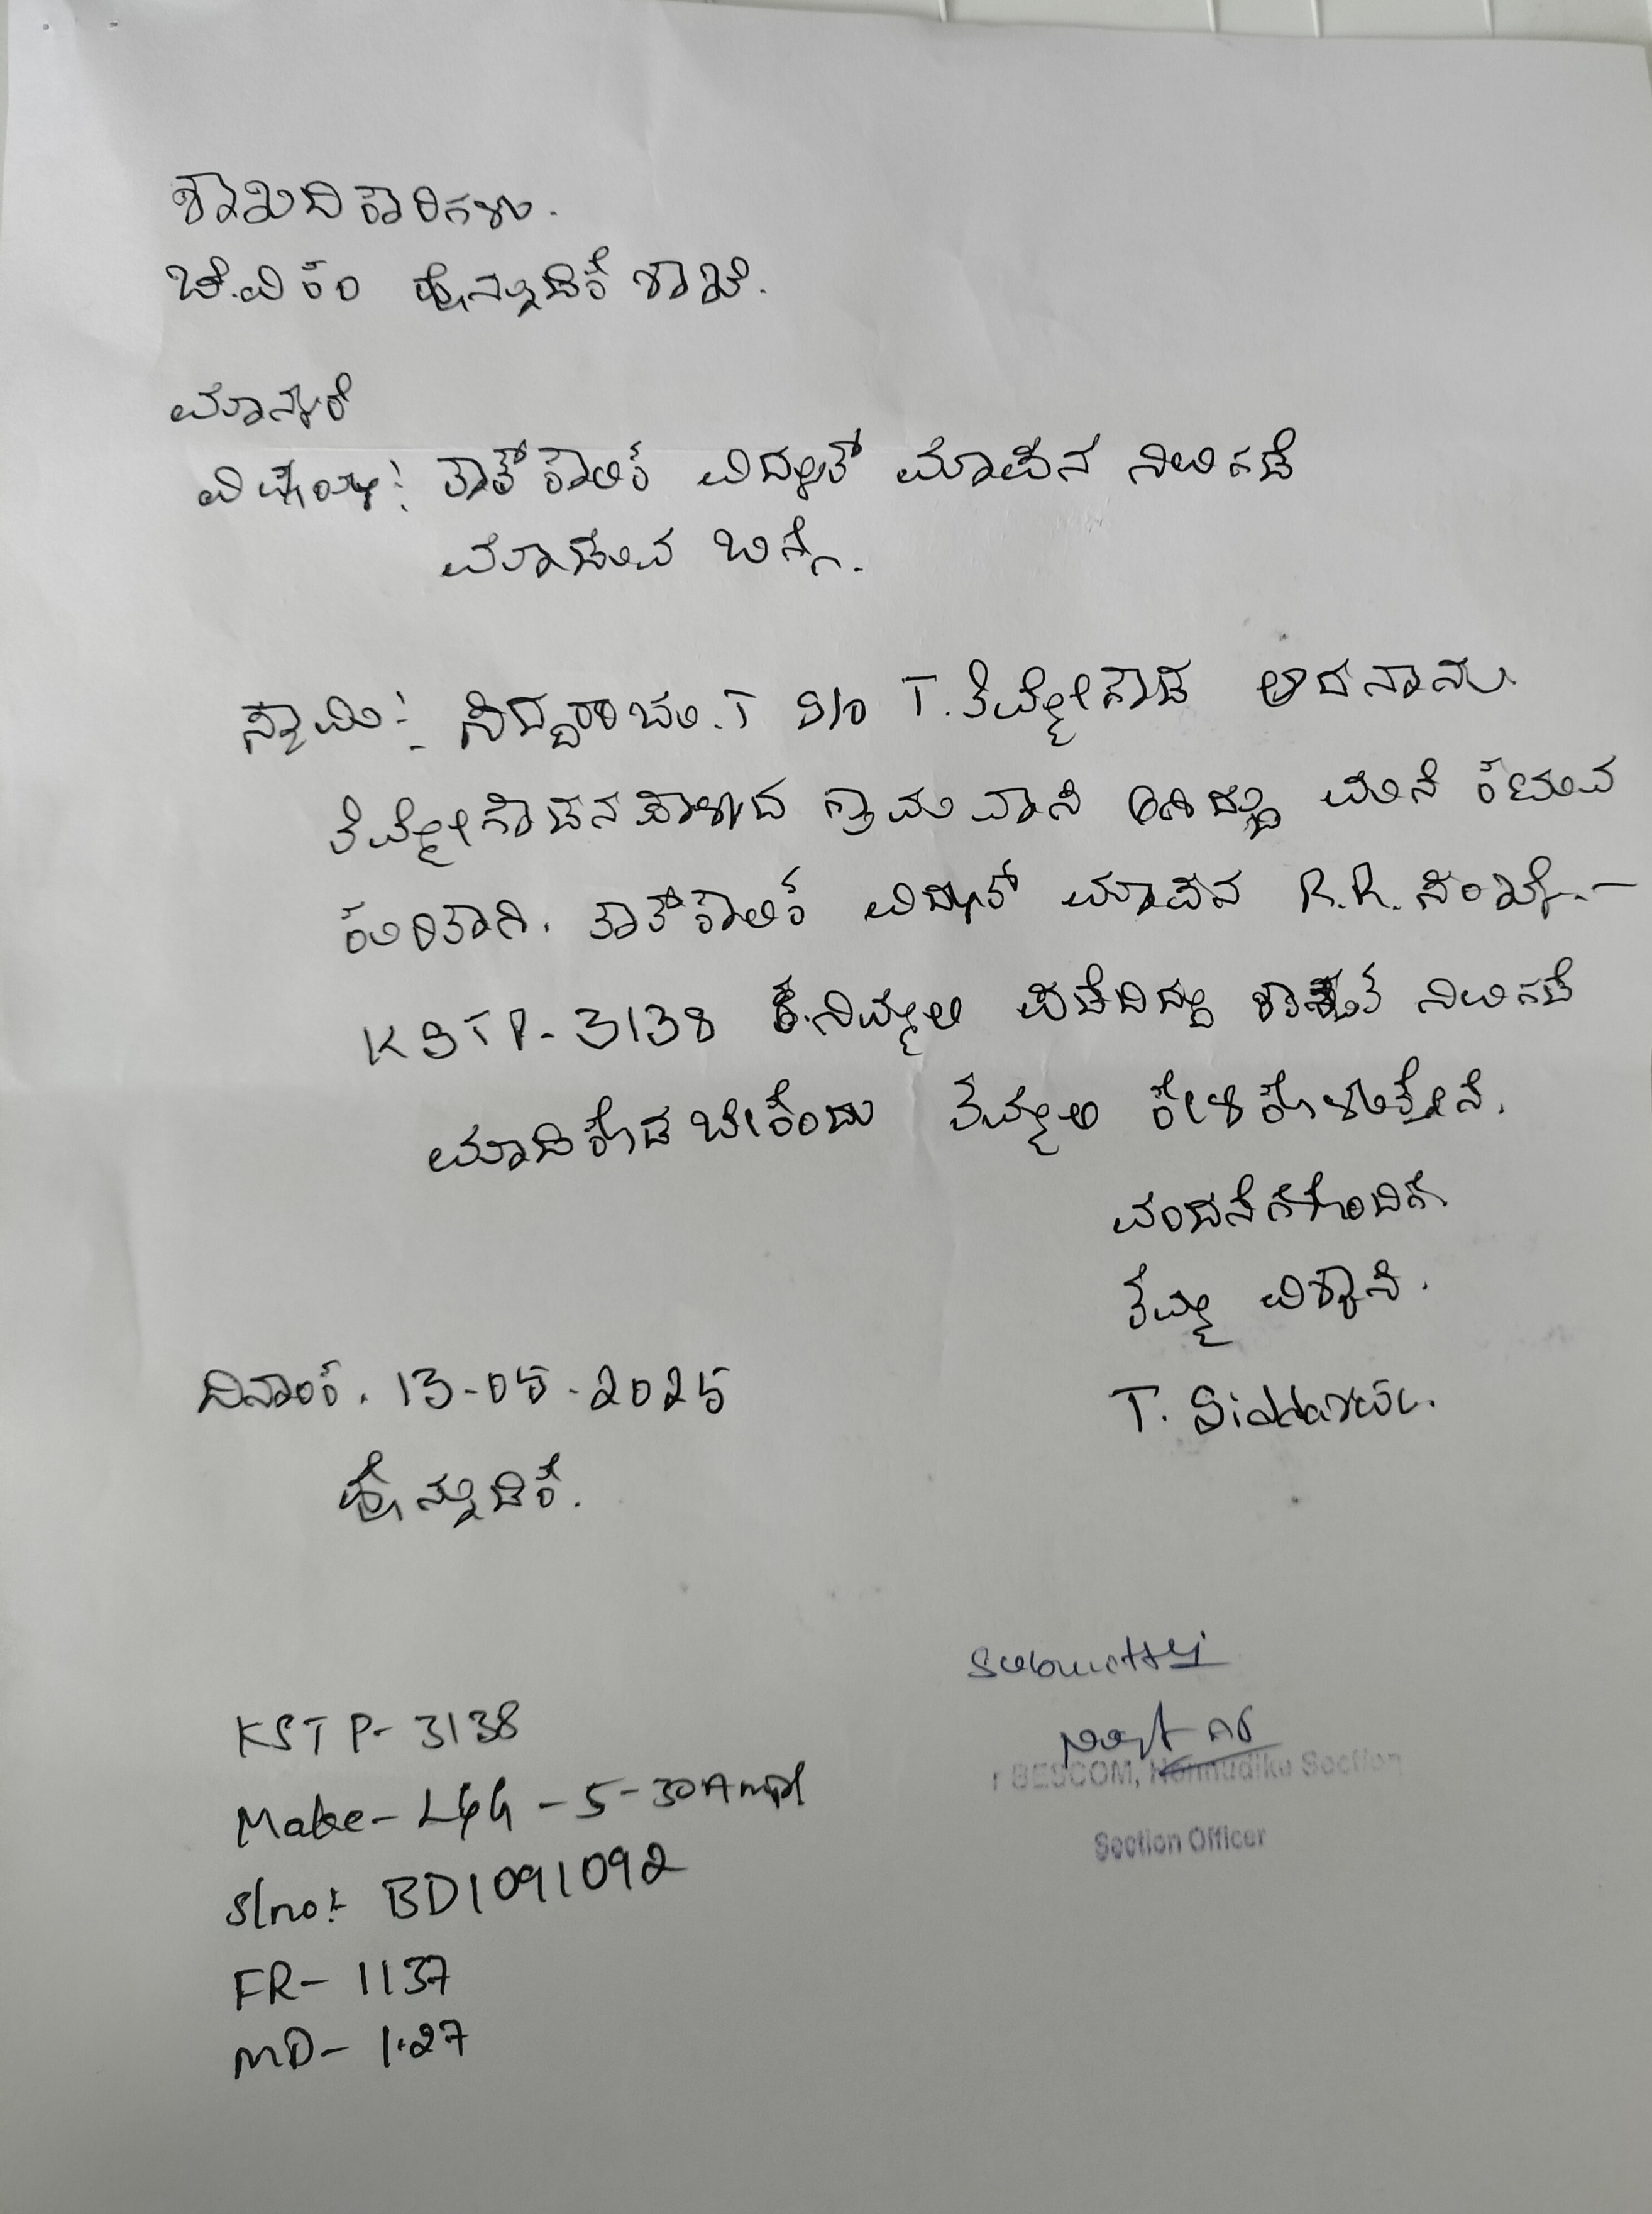 ಶಾಖದಿಕಾರಿಗಳು.
ಬೆ.ವಿ ಕಂ ಹೊನ್ನುಡಿಕೆ ಶಾಖೆ.
ಮಾನ್ಯರೆ
ವಿಷಯ: ತಾತ್ಕಾಲಿಕ ವಿದ್ಯುತ್ ಮಾಪನ ನಿಲಿಗಡೆ
ಮಾಡುವ ಬಗ್ಗೆ.
ಸ್ವಾಮಿ:- ಸಿದ್ದರಾಜು.T S/o T.ತಿಮ್ಮೇಗೌಡ ಆದ ನಾನು
ತಿಮ್ಮೇಗೌಡನ ಪಾಳ್ಯದ ಗ್ರಾಮ ವಾಸಿ ಆಗಿದ್ದು ಮನೆ ಕಟುವ
ಕುರಿತಾಗಿ. ತಾತ್ಕಾಲಿಕ ವಿದ್ಯುತ್ ಮಾಪನ R.R. ಸಂಖ್ಯೆ.-
KSTP-3138 ನಿಮ್ಮಲಿ ಪಡೆದಿದ್ದು ಶಾಶ್ವತ ನಿಲಿಗಡೆ
ಮಾಡಿಕೊಡಬೇಕೆಂದು ತಮ್ಮಲಿ ಕೇಳಿಕೊಳುತ್ತೇನೆ.
ವಂದನೆಗಳೊಂದಿಗೆ
ತಮ್ಮ ವಿಶ್ವಾಸಿ.
ದಿನಾಂಕ. 13-05-2025
T. Siddaraju.
ಹೊನ್ನುಡಿಕೆ.
KSTP- 3138
Make- L&G - 5-30Amp
Slno:- BD1091092
FR- 1137
MD- 1.27
BESCOM, Honnudike Section
Section Officer